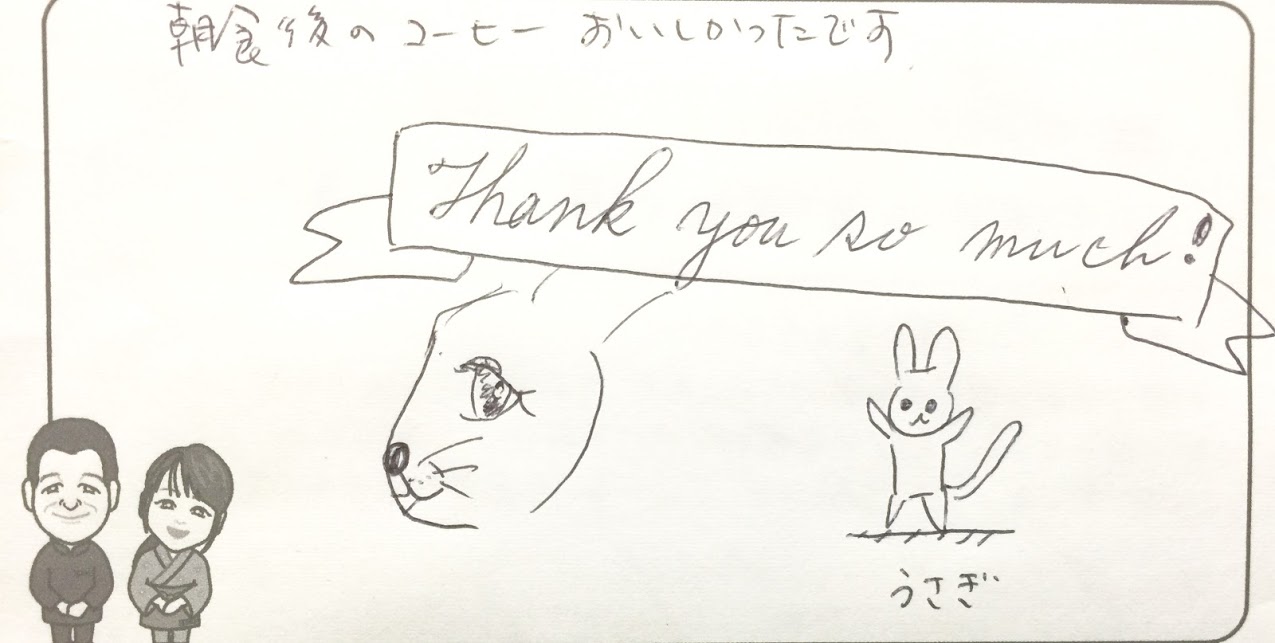 朝食後のコーヒーおいしかったです
Thank you so much!
うさぎ